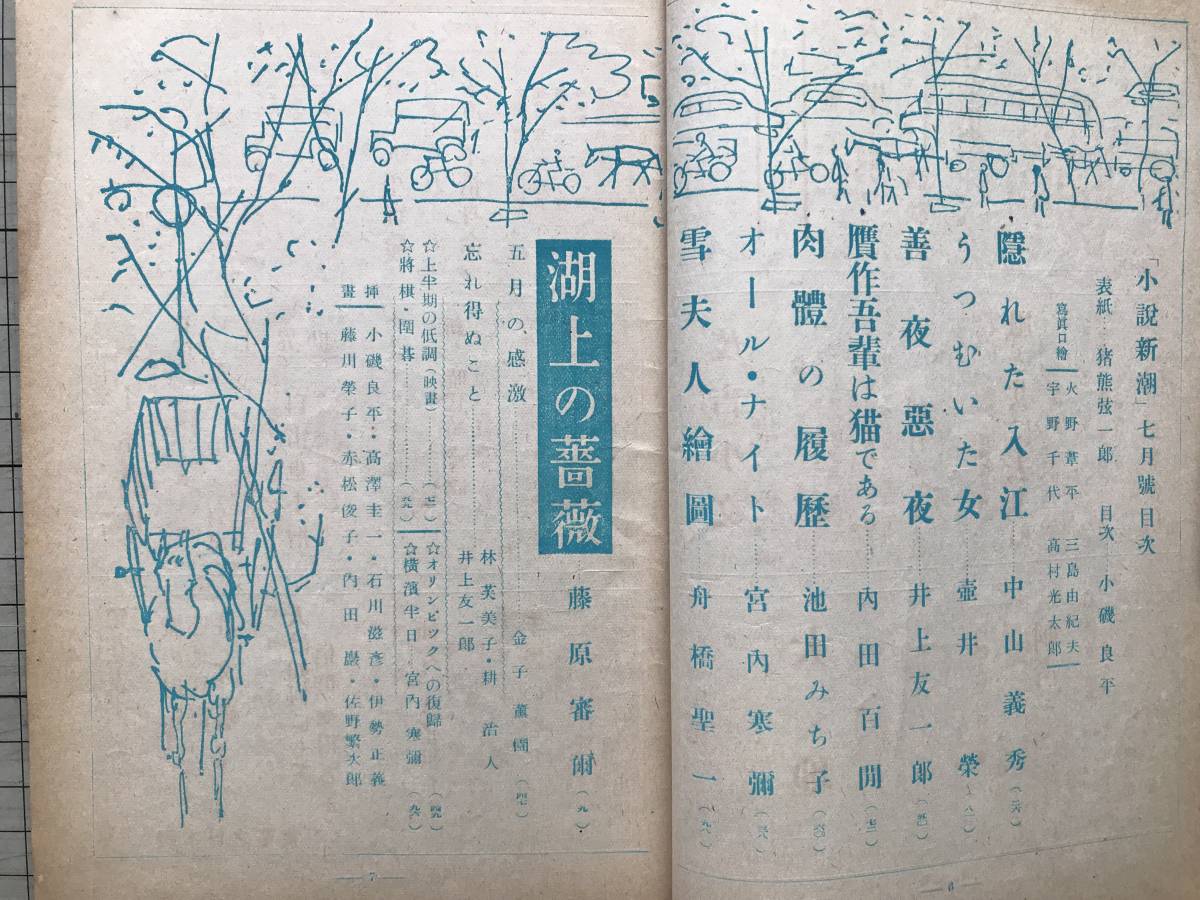 「小説新潮」七月號目次
表紙…猪熊弦一郎　目次……小磯良平
寫眞口繪
火野葦平　三島由紀夫
宇野千代　高村光太郎
隱れた入江……中山義秀
うつむいた女……壷井　榮
善夜惡夜……井上友一郎
贋作吾輩は猫である……內田百閒
肉體の履歷……池田みち子
オール・ナイト……宮內寒彌
雪夫人繪圖……舟橋聖一
湖上の薔薇……藤原審爾（九）
五月の感激……金子薰園
忘れ得ぬこと……林芙美子・耕　治人
井上友一郎
☆上半期の低調（映畫）……
☆オリンピックへの復歸
☆將棋・圍碁……
☆橫濱半日…宮內寒彌
挿畫
小磯良平・高澤圭一・石川滋彥・伊勢正義
藤川榮子・赤松俊子・內田　巖・佐野繁次郎
7
6